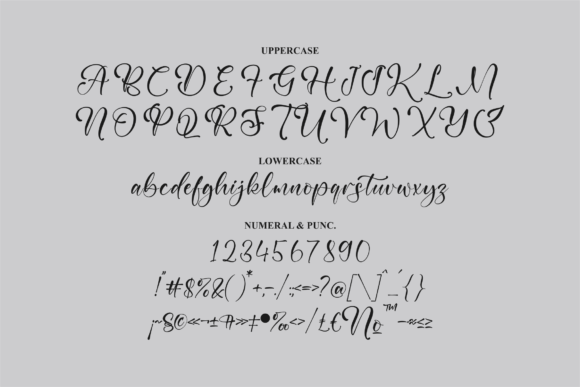 UPPERCASE
ABCDEFGHIJKLM
NOPQRSTUVWXYZ
LOWERCASE
abcdefghijklmnopqrstuvwxyz
NUMERAL & PUNC.
1234567890
!"#$%&()*+,-./:;<=>?@[\]^_´{}
¡~§©«¬±¶»‡•‰<>/£€№™